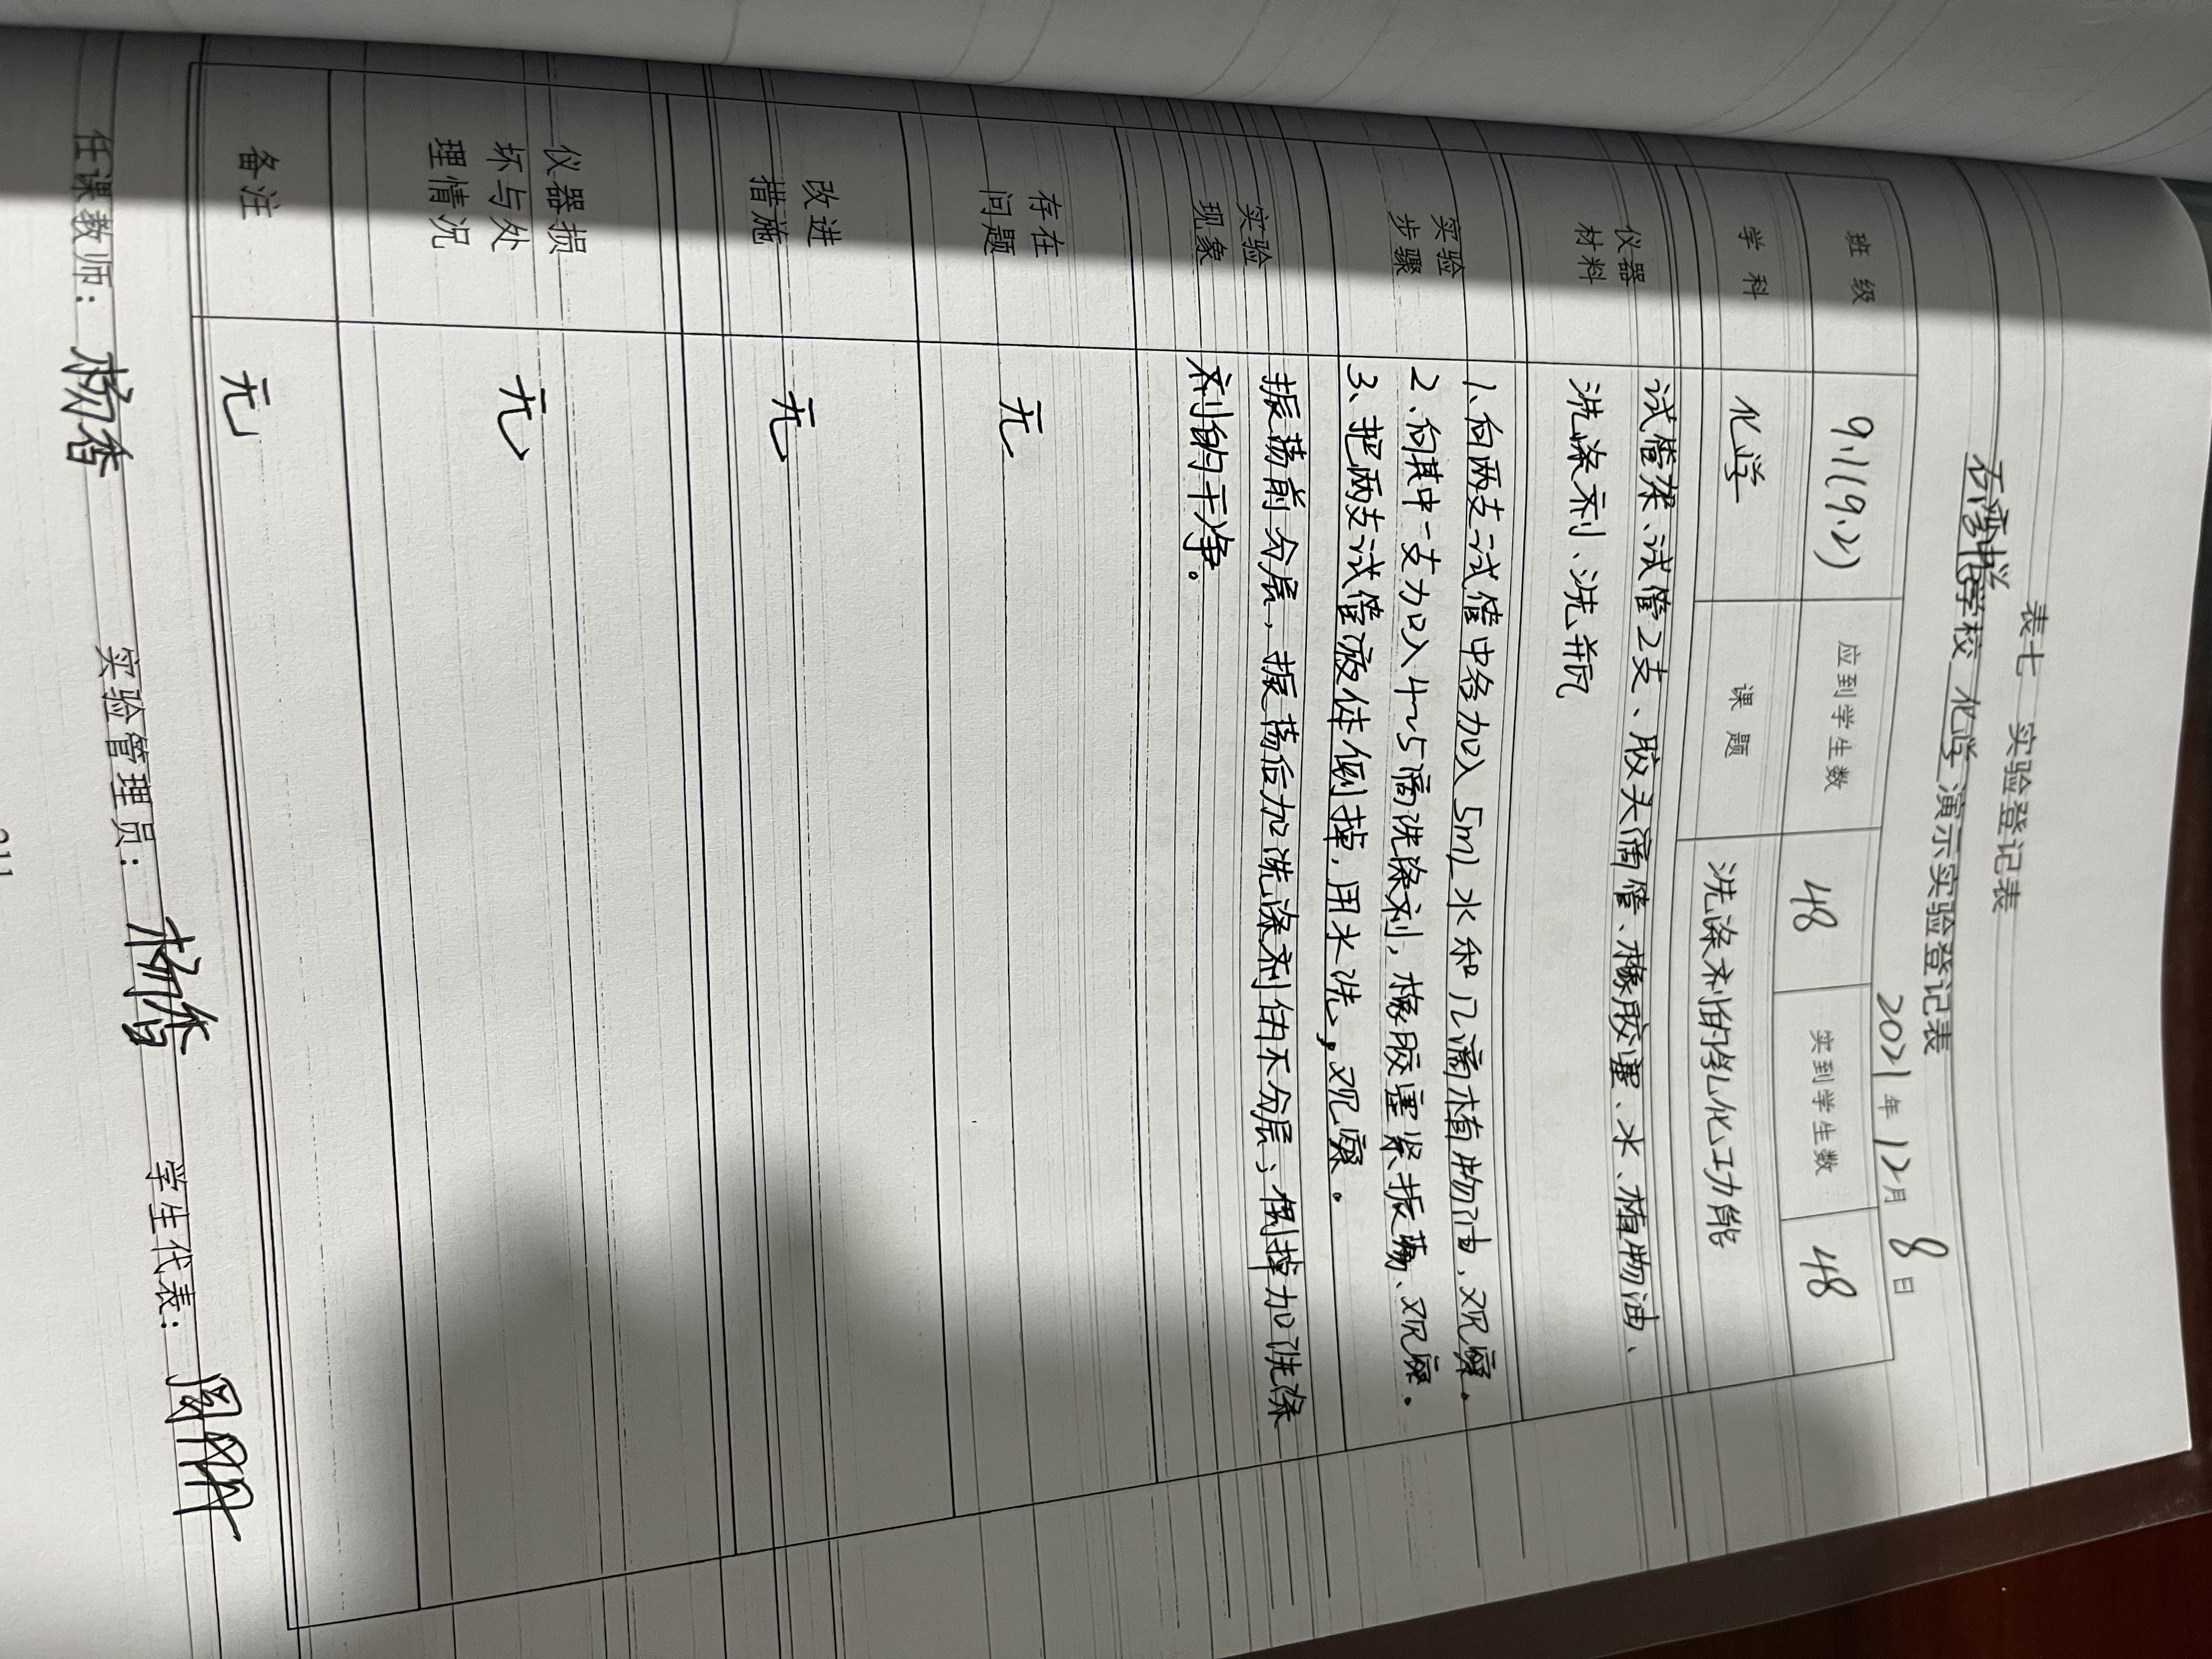 表七 实验登记表
学校 化学 演示实验登记表
2021年12月8日
班级 9.1(9.2) 应到学生数 48 实到学生数 48
学科 化学 课题 洗涤剂的乳化功能
仪器材料 试管架、试管2支、胶头滴管、橡胶塞、水、植物油、
洗涤剂、洗瓶
实验步骤 1、向两支试管中各加入5ml水和几滴植物油,观察。
2、向其中一支加入4~5滴洗涤剂,橡胶塞紧振荡、观察。
3、把两支试管液体倒掉,用水洗,观察。
实验现象 振荡前分层,振荡后加洗涤剂的不分层,倒掉加洗涤
剂的干净。
存在问题 无
改进措施 无
仪器损坏与处理情况 无
备注 无
任课教师: 实验管理员: 学生代表:
211